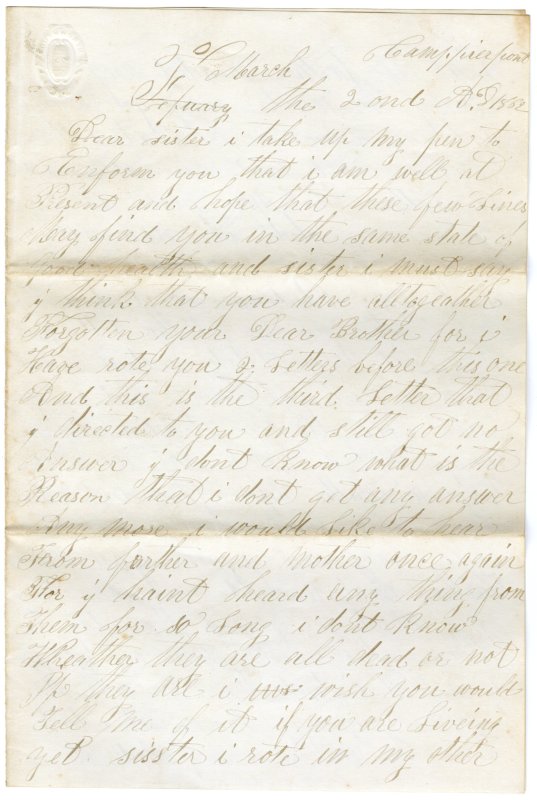 Camppierpont
March
Febuary the 2ond AD 1862
Dear sister i take up my pen to
Enform you that i am well at
Present and hope that these few Lines
May find you in the same state of
Good health and sister i must say
i think that you have alltogeather
Forgotten your Dear Brother for i
Have rote you 2 Letters before this one
And this is the third Letter that
i directed to you and still got no
Answer i dont know what is the
Reason that i dont get any answer
Any more i would Like to hear
From forther and mother once again
For i haint heard any thing from
Them for so Long i dont know
Wheather they are all dead or not
If they are i wish you would
Tell me of it if you are Liveing
yet sisster i rote in my other